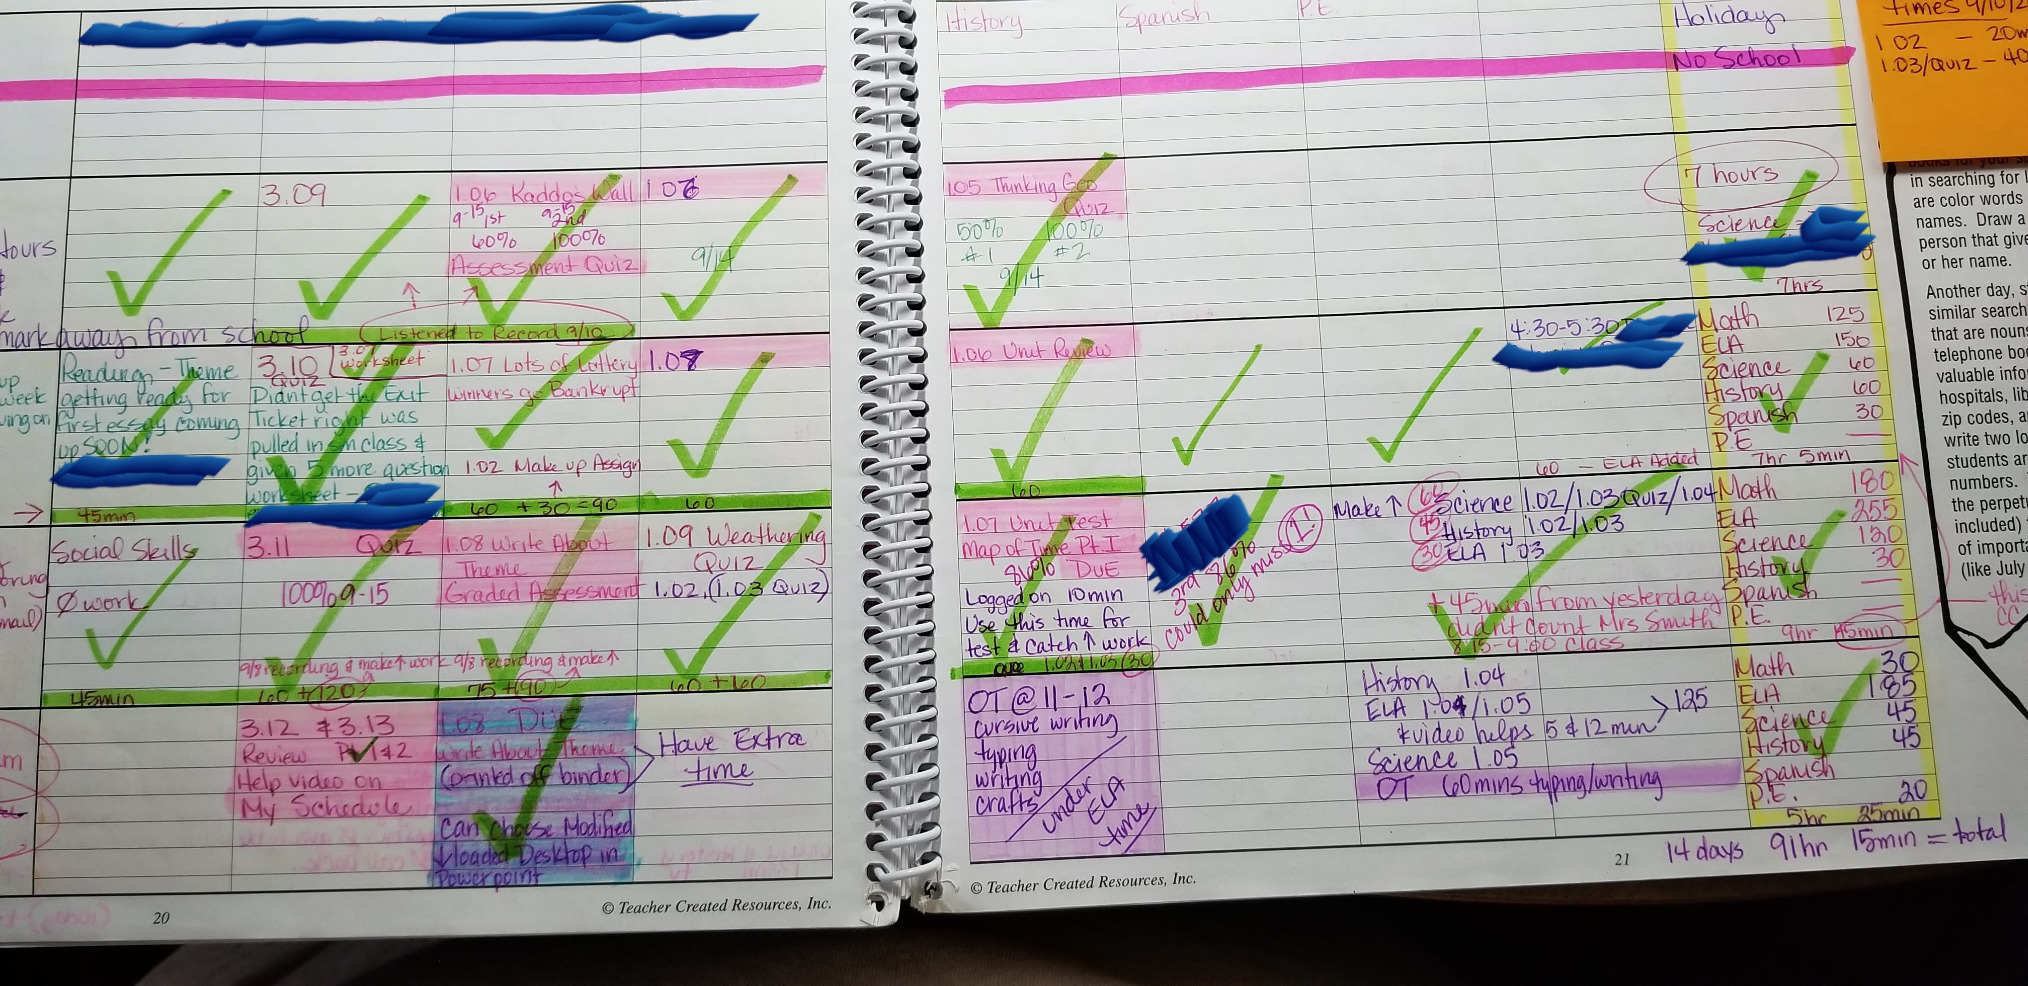 History
Spanish
P.E.
Holiday
No School
times 9/10/2
1.02 - 20m
1.03/Quiz - 40
3.09
1.06 Kaddo's Wall
9-15 1st 9-15 2nd
60% 100%
Assessment Quiz
9/14
tours
mark away from school
(Listened to Record 9/10)
1.05 Thinking Geo
Quiz
50% 100%
#1 #2
9/14
7 hours
Science
7hrs
up
week
ving on
Reading - Theme
getting ready for
first essay coming
up SOON!
45min
3.10
Quiz
Worksheet
Didnt get the Exit
Ticket right was
pulled in sm class &
given 5 more question
worksheet -
1.07 Lots of Lottery
winners go Bankrupt
1.02 Make up Assign
↑
60 + 30 = 90
60
1.06 Unit Review
60
4:30-5:30
60 - ELA Added
Math 125
ELA 150
Science 60
History 60
Spanish 30
P.E —
7hr 5min
Social Skills
Ø work
45min
3.11 Quiz
100% 9-15
9/8 recording & make↑ work
60 + (120)
1.08 Write About
Theme
Graded Assessment
9/8 recording & make↑
75 + (90)
1.09 Weathering
Quiz
1.02, (1.03 Quiz)
60 + 60
1.07 Unit Test
Map of Time Pt. I
86% DUE
Logged on 10min
Use this time for
test & Catch ↑ work
1.03 (30)
3rd 86%
could only miss
Make ↑ Science 1.02/1.03 Quiz/1.04
45 History 1.02/1.03
30 ELA 1.03
+ 45min from yesterday
didn't count Mrs Smuth
8:15-9:00 class
Math 180
ELA 255
Science 130
History 30
Spanish —
P.E. —
9hr 45min
this
CC
3.12 & 3.13
Review Pt 1 & 2
Help video on
My Schedule
1.08 Due
Write About Theme
(printed off binder)
Can choose Modified
↓loaded Desktop in
Powerpoint
Have Extra
time
OT @ 11-12
cursive writing
typing
writing
crafts
under
ELA
time
History 1.04
ELA 1.04/1.05
*video helps 5 & 12 min > 125
Science 1.05
OT 60mins typing/writing
Math 30
ELA 185
Science 45
History 45
Spanish
P.E. 20
5hr 25min
14 days 91hr 15min = total
20
© Teacher Created Resources, Inc.
© Teacher Created Resources, Inc.
21
in searching for
are color words
names. Draw a
person that give
or her name.
Another day, s
similar search
that are noun
telephone bo
valuable info
hospitals, lib
zip codes, a
write two lo
students ar
numbers.
the perpet
included)
of importa
(like July